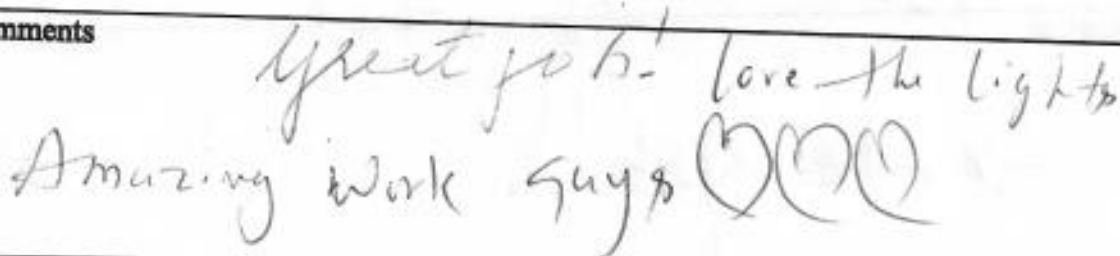 mments
Great job! love the lights
Amazing work guys ♡♡♡